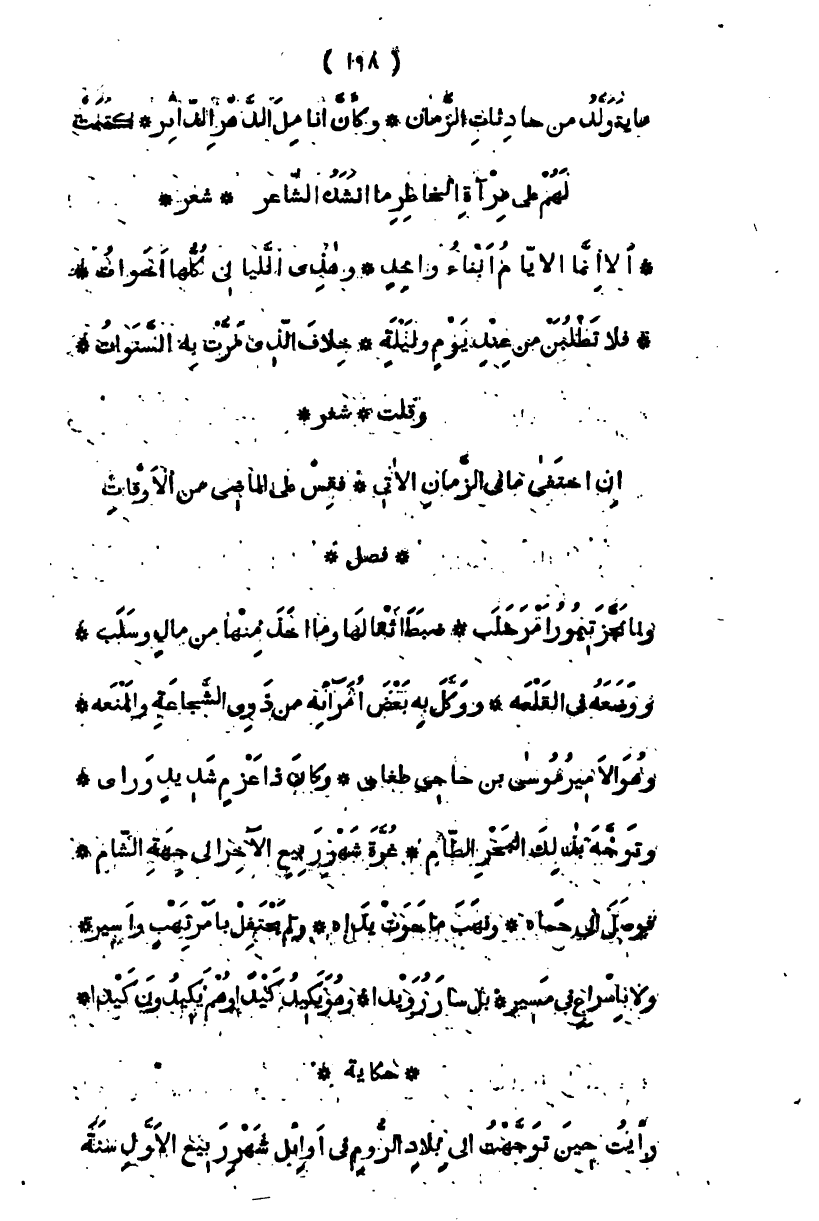 ( ١٩٨ )
ما يتولَّدُ من حادِثاتِ الزَّمان * وكأنَّ أنامِلَ الدَّهْرِ الدَّائِر * كتبَتْ
لَهُمْ على مِرْآةِ الخاطِرِ ما انشدَ الشَّاعر * شعر *
* ألا إنَّما الايّامُ أَبْناءُ واحِدٍ * وهٰذِى اللَّيالى كُلُّها اَخَواتُ *
* فلا تَطْلُبَنْ من عِنْدِ يَوْمٍ ولَيْلَةٍ * خِلافَ الّذى مَرَّتْ بِهِ السَّنَواتُ *
وقلت * شعر *
اِنِ اختَفىٰ ما فى الزَّمانِ الاٰتِى * فقِسْ على الماضِى من الاَوْقاتِ
* فصل *
ولما نجَزَ تيمورُ اَمْرَ حَلَب * ضبَطَ اَثْقالَها وما اخَذَ مِنْها من مالٍ وسَلَب *
ووضَعَهُ فى القَلْعَه * ووَكَّلَ بِهِ بَعْضَ اُمَرآئِه من ذَوِى الشَّجاعَةِ والمَنَعه *
وهُوَ الاَميرُ مُوسٰى بن حاجى طغاى * وكانَ ذا عَزْمٍ شَديدٍ وَراى *
وتوَجَّهَ بذٰلِكَ البَحْرِ الطَّام * غُرَّةَ شَهْرِ رَبيعِ الآخِر الى جِهَةِ الشّام *
فوصَلَ الى حَماه * ونهَبَ ما حَوَتْ يَداه * ولم يَحْتَفِلْ بامْرِ نَهْبٍ واَسِير *
ولا باِسْراعٍ فى مَسِير * بل سارَ رُوَيْدا * وهُوَ يَكِيدُ كَيْدًا وهُمْ يَكِيدُونَ كَيْدا *
* حكاية *
رأيْتُ حِينَ توَجَّهْتُ الى بِلادِ الرُّومِ فى اَوائِل شَهْرِ رَبيع الاَوَّلِ سَنَةَ